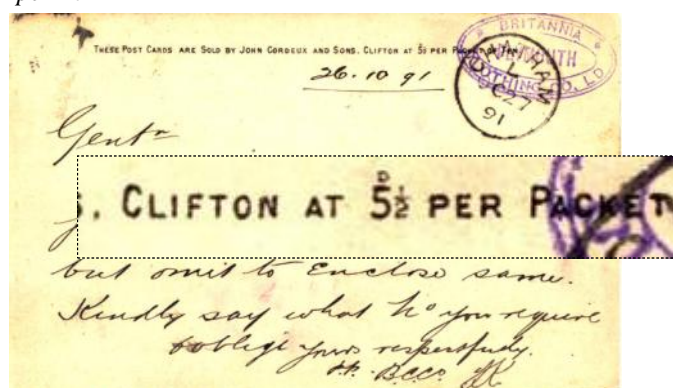 THESE POST CARDS ARE SOLD BY JOHN CORDEUX AND SONS. CLIFTON AT 5½ PER PACKET OF TEN
BRITANNIA
CLOTHING CO. LD
26.10 91
L
OC27
91
Gentn
S. CLIFTON AT 5D½ PER PACKET
but omit to enclose same.
Kindly say what No you require
& oblige yours respectfully.